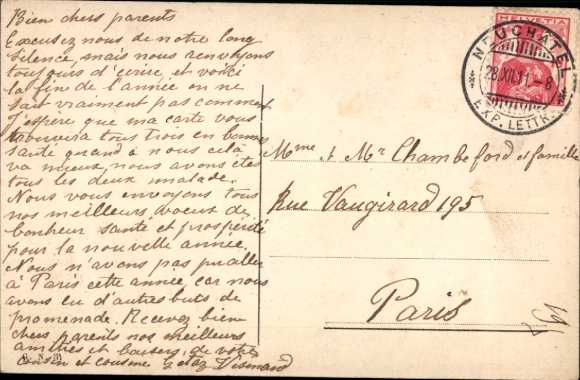 Bien chers parents
Excusez nous de notre long
silence, mais nous renvoyons
toujours d'écrire, et voici
la fin de l'année on ne
sait vraiment pas comment
J'espère que ma carte vous
trouvera tous trois en bonne
santé quand à nous cela
va mieux, nous avons étés
tous les deux malade.
Nous vous envoyons tous
nos meilleurs voeux de
bonheur santé et prospérité
pour la nouvelle année.
Nous n'avons pas pu aller
à Paris cette année, car nous
avons eu d'autres buts de
promenade. Recevez bien
chers parents nos meilleurs
amitiés et baisers, de votre
cousin et cousine
HELVETIA
NEUCHÂTEL
28.XII.11-8
EXP. LETTR.
Mme et Mr Chambeford et famille
Rue Vaugirard 195
Paris